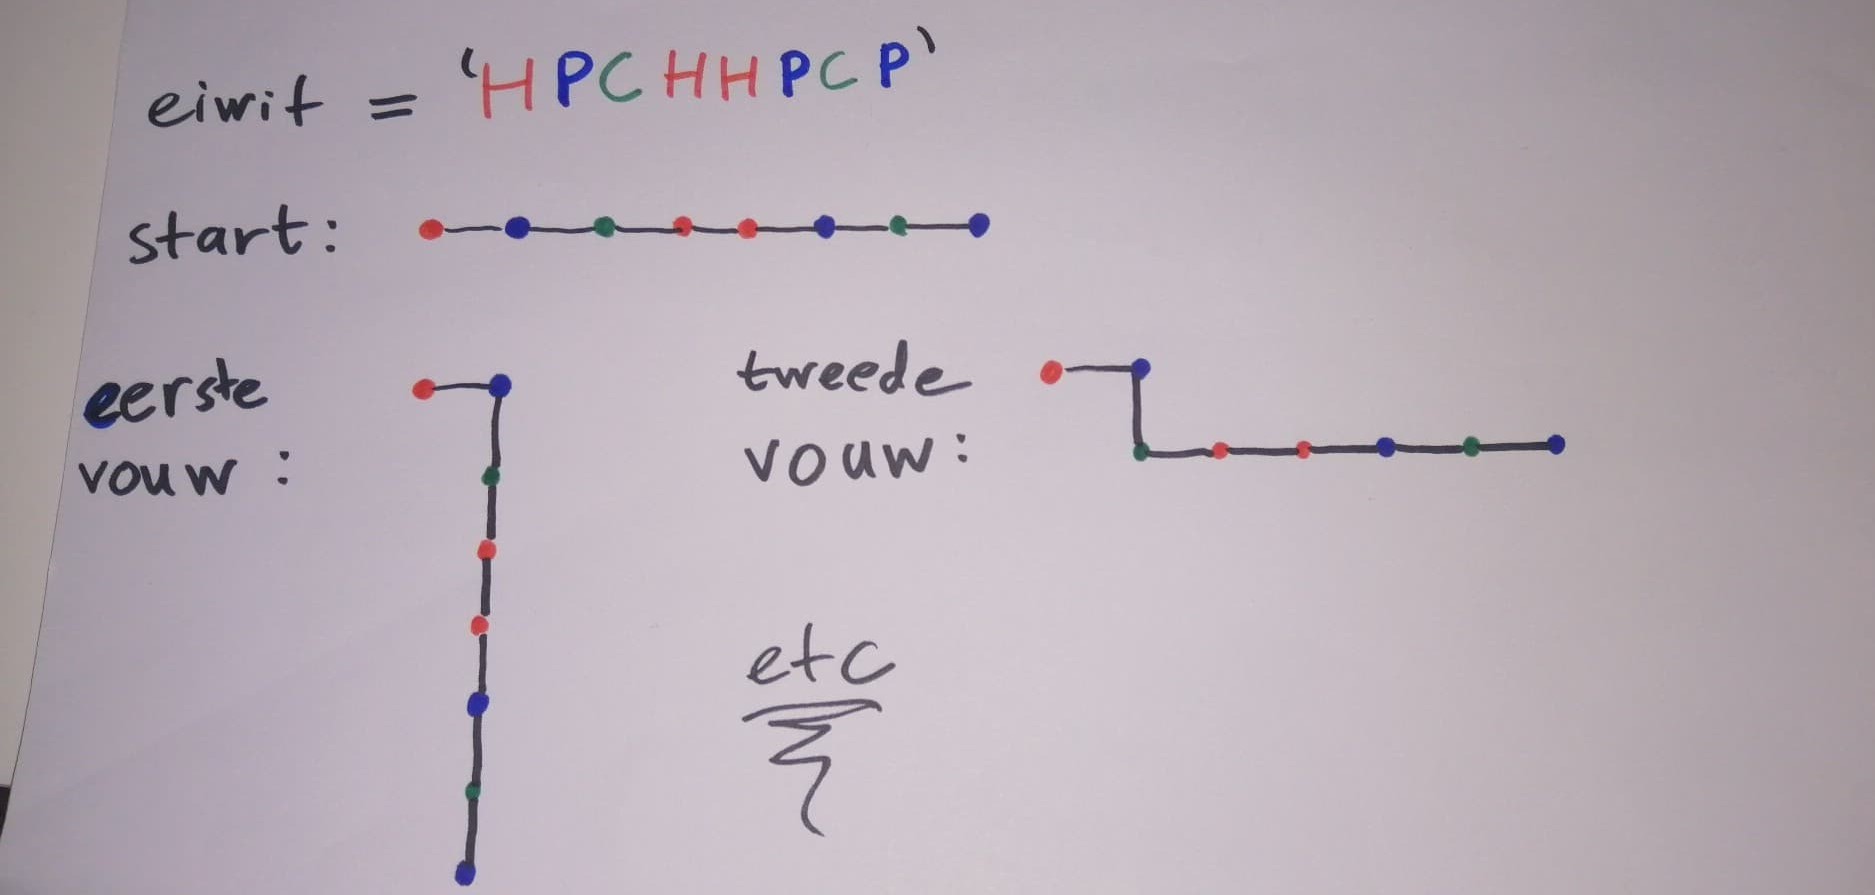 eiwit = 'HPCHHPCP'
start:
eerste
vouw:
tweede
vouw:
etc